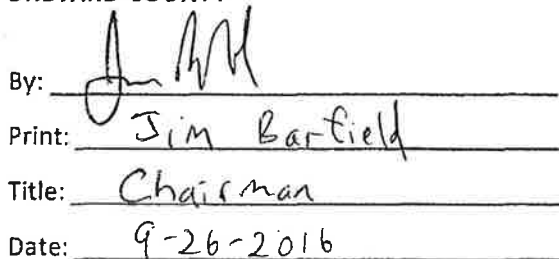 By:
Print: Jim Barfield
Title: Chairman
Date: 9-26-2016